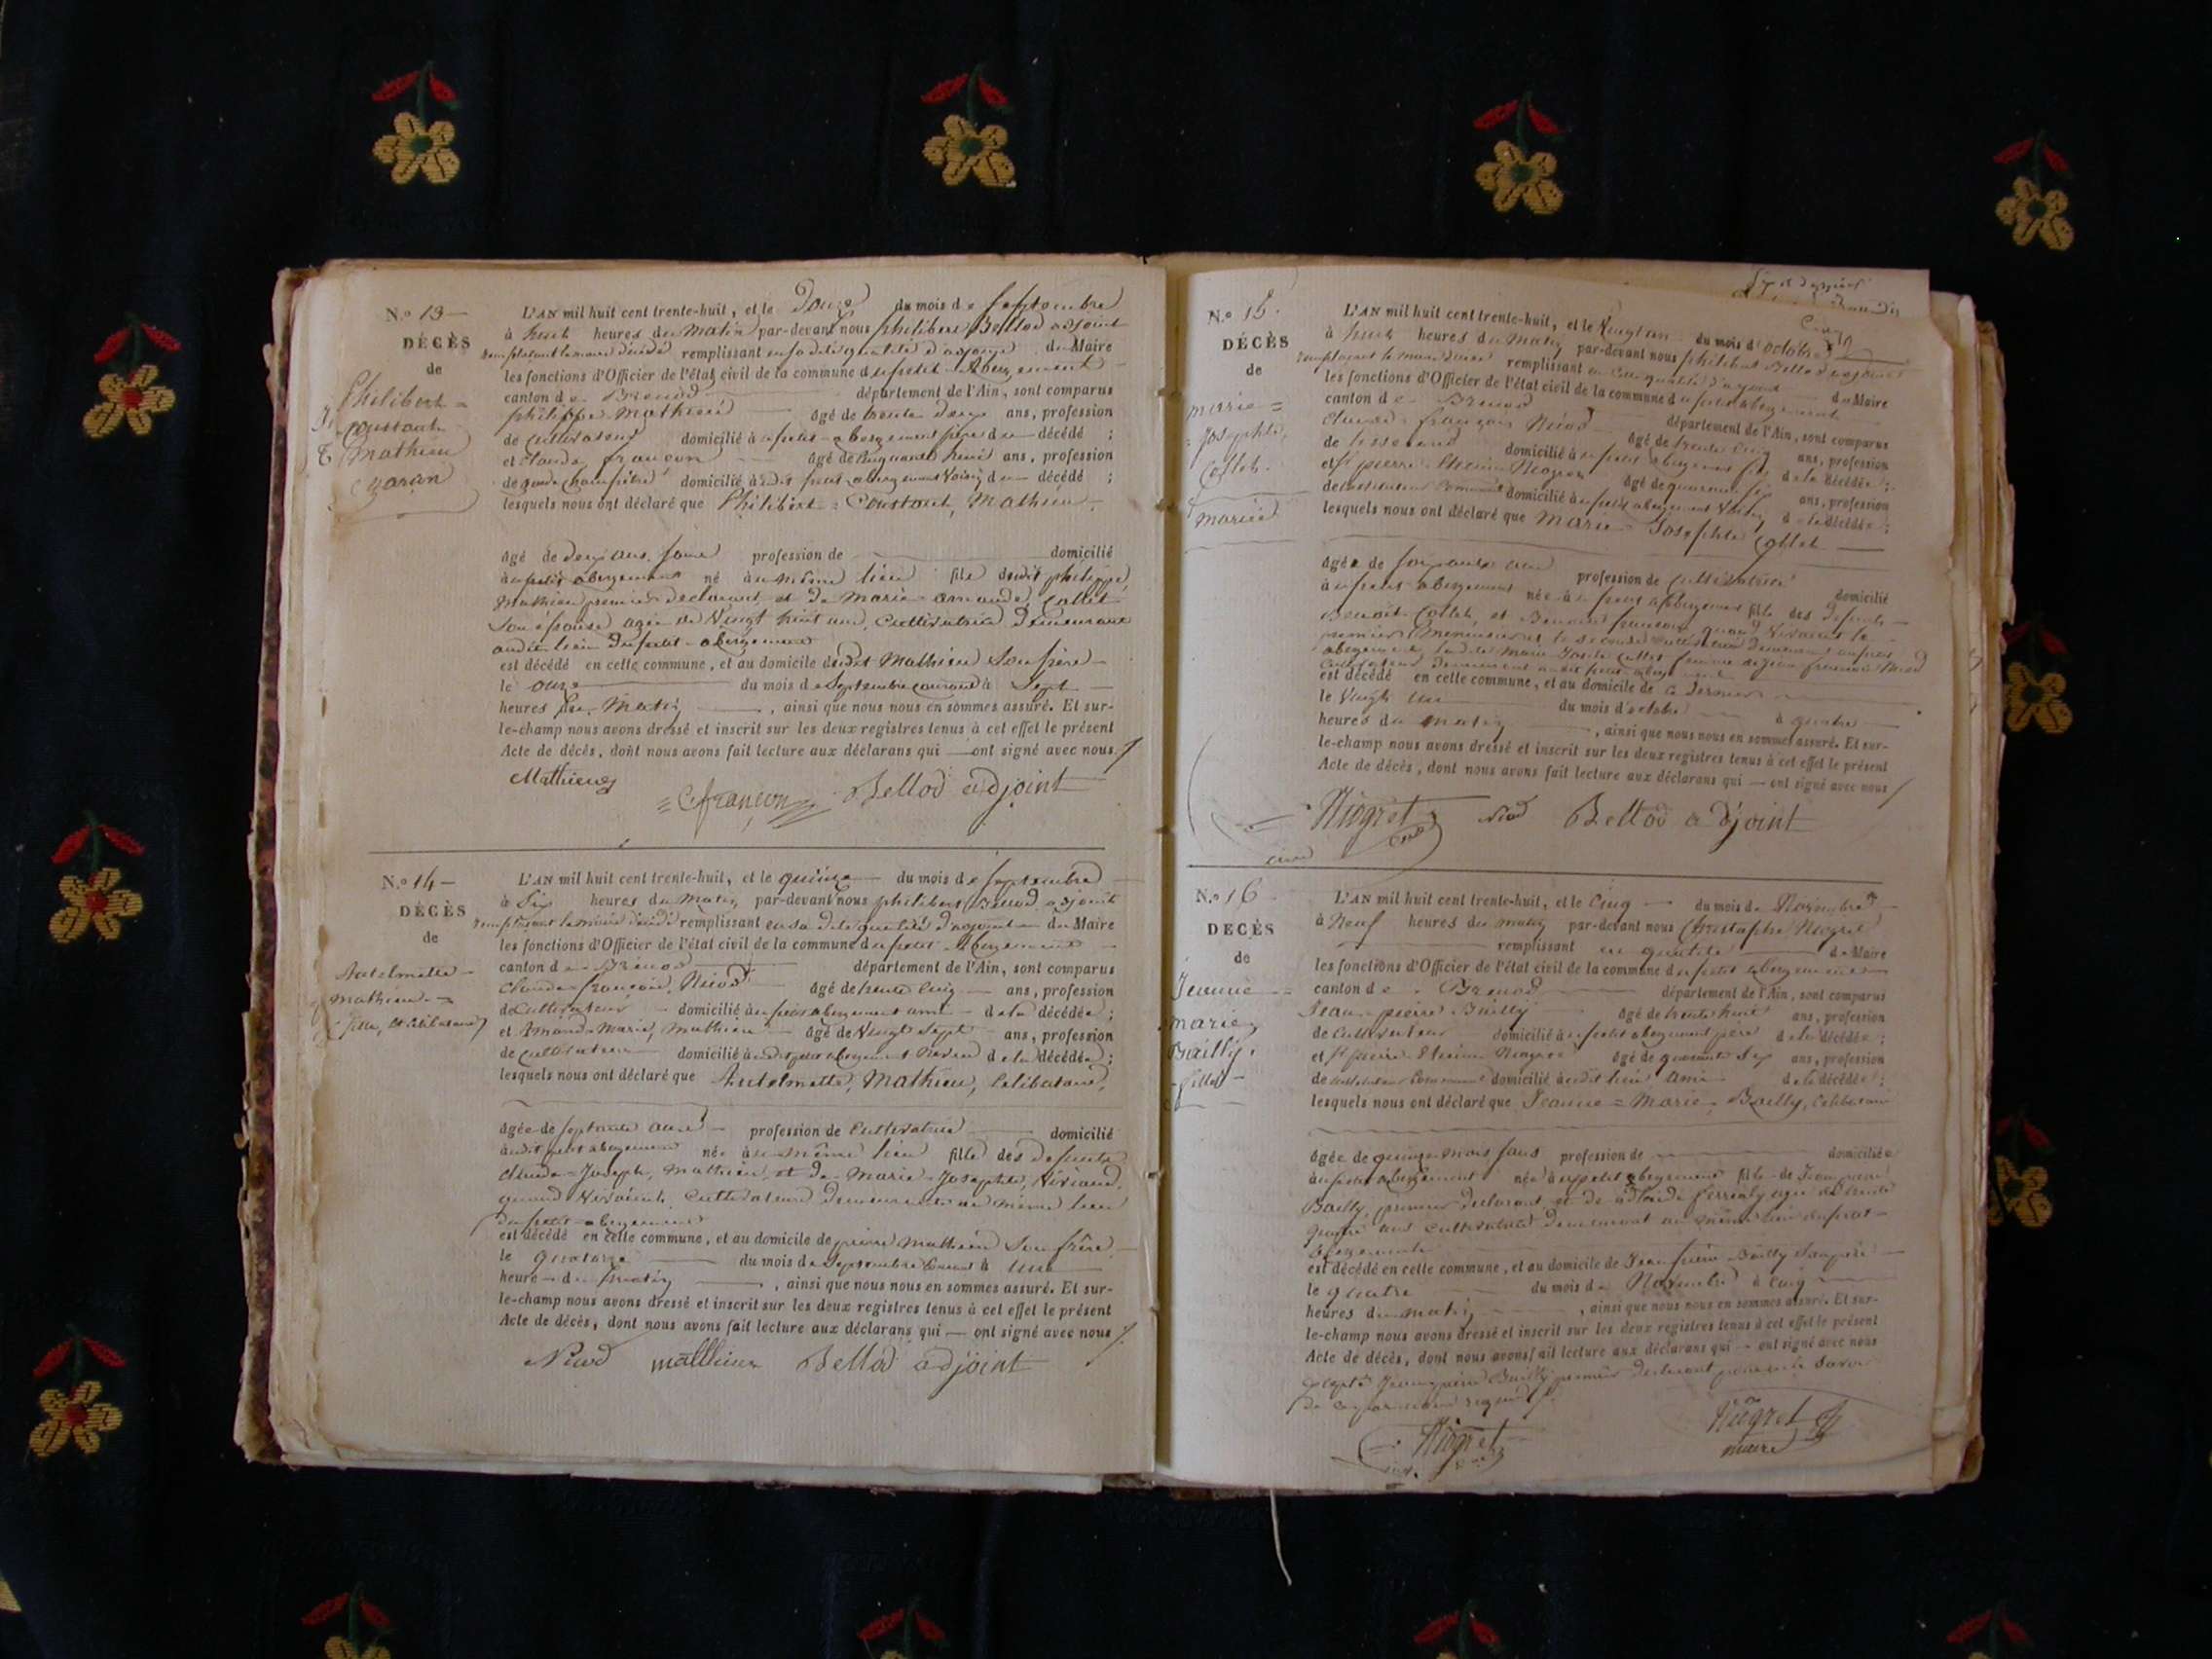 N.o 13
DÉCÈS
de
Philibert =
Constant
Mathieu
garçon
L'AN mil huit cent trente-huit, et le Douze du mois de Septembre
à huit heures du Matin par-devant nous philibert Bellod adjoint
remplaçant le maire décédé remplissant en sa dite qualité d'adjoint du Maire
les fonctions d'Officier de l'état civil de la commune du petit Abergement
canton de Brenod département de l'Ain, sont comparus
philippe Mathieu âgé de trente deux ans, profession
de Cultivateur domicilié à au petit abergement père du décédé ;
et Claude françon âgé de Cinquante huit ans, profession
de garde Champêtre domicilié audit petit abergement Voisin du décédé ;
lesquels nous ont déclaré que Philibert = Constant, Mathieu
agé de deux ans, sans profession de domicilié
au petit abergement né au même lieu fils dudit philippe
Mathieu premier declarant et de Marie Collet
Son épouse agée de Vingt huit ans, Cultivatrice Demeurant
audit lieu du petit = abergement
est décédé en cette commune, et au domicile dudit Mathieu Son père
le onze du mois de Septembre courant à Sept
heures du Matin, ainsi que nous nous en sommes assuré. Et sur-
le-champ nous avons dressé et inscrit sur les deux registres tenus à cet effet le présent
Acte de décès, dont nous avons fait lecture aux déclarans qui ont signé avec nous.
Mathieu
C. françon
Bellod adjoint
N.o 14
DÉCÈS
de
Antelmette
Mathieu
(fille, Célibataire)
L'AN mil huit cent trente-huit, et le quinze du mois de Septembre
à Six heures du Matin par-devant nous philibert Bellod adjoint
remplaçant le maire décédé remplissant en sa dite qualité d'adjoint du Maire
les fonctions d'Officier de l'état civil de la commune du petit Abergement
canton de Brenod département de l'Ain, sont comparus
Claude françois Nicod âgé de trente Cinq ans, profession
de Cultivateur domicilié au petit abergement ami de la décédée ;
et Marie, Mathieu âgé de Vingt Sept ans, profession
de domicilié audit petit abergement de la décédée ;
lesquels nous ont déclaré que Antelmette, Mathieu, Célibataire,
âgée de Septante ans profession de Cultivatrice domicilié
audit petit abergement née au même lieu fille des défunts
Claude = Joseph, Mathieu, et de Marie = Josephte,
quand Vivaient, Cultivateurs Demeurant au même lieu
du petit = abergement
est décédé en cette commune, et au domicile de pierre Mathieu Son frère
le quatorze du mois de Septembre Courant à Une
heure du Matin, ainsi que nous nous en sommes assuré. Et sur-
le-champ nous avons dressé et inscrit sur les deux registres tenus à cet effet le présent
Acte de décès, dont nous avons fait lecture aux déclarans qui ont signé avec nous
Nicod mathieu Bellod adjoint
N.o 15
DÉCÈS
de
marie =
Josephte,
Collet.
mariée
L'AN mil huit cent trente-huit, et le Vingt un du mois d'octobre
à huit heures du Matin par-devant nous philibert Bellod adjoint
remplaçant le maire décédé remplissant en cette qualité d'adjoint du Maire
les fonctions d'Officier de l'état civil de la commune du petit abergement
canton de Brenod département de l'Ain, sont comparus
Claude = françois Nicod âgé de trente Cinq ans, profession
de domicilié au petit abergement fils de la décédée ;
et St pierre Etienne Niogret âgé de quarante Six ans, profession
de instituteur Communal domicilié au petit abergement Voisin de la décédée ;
lesquels nous ont déclaré que Marie = Josephte Collet
âgée de Soixante ans profession de Cultivatrice domicilié
au petit abergement née au petit Abergement fille des défunts
Benoit Collet, et françon, quand Vivaient le
est décédé en cette commune, et au domicile de ce dernier
le Vingt un du mois d'octobre à quatre
heures du matin, ainsi que nous nous en sommes assuré. Et sur-
le-champ nous avons dressé et inscrit sur les deux registres tenus à cet effet le présent
Acte de décès, dont nous avons fait lecture aux déclarans qui ont signé avec nous
Niogret Nicod Bellod adjoint
N.o 16
DÉCÈS
de
Jeanne =
marie,
Bailly.
fille
L'AN mil huit cent trente-huit, et le Cinq du mois de Novembre
à Neuf heures du matin par-devant nous Christophe Niogret
remplissant en qualité de Maire
les fonctions d'Officier de l'état civil de la commune du petit abergement
canton de Brenod département de l'Ain, sont comparus
Jean = pierre Bailly âgé de trente huit ans, profession
de Cultivateur domicilié au petit abergement père de la décédée ;
et St pierre Etienne Niogret âgé de quarante Six ans, profession
de instituteur Communal domicilié audit lieu ami de la décédée ;
lesquels nous ont déclaré que Jeanne = Marie, Bailly, Célibataire
âgée de quinze mois sans profession de domiciliée
au petit abergement née au petit abergement fille de Jean pierre
Bailly, premier declarant et de agée de trente
quatre ans Cultivatrice demeurant au même lieu du petit =
abergement
est décédé en cette commune, et au domicile de Jean pierre Bailly Son père
le quatre du mois de Novembre à Cinq
heures du matin, ainsi que nous nous en sommes assuré. Et sur-
le-champ nous avons dressé et inscrit sur les deux registres tenus à cet effet le présent
Acte de décès, dont nous avons fait lecture aux déclarans qui ont signé avec nous
excepté Jean pierre Bailly premier declarant pour ne le Savoir
de ce requis.
Niogret
Niogret
maire